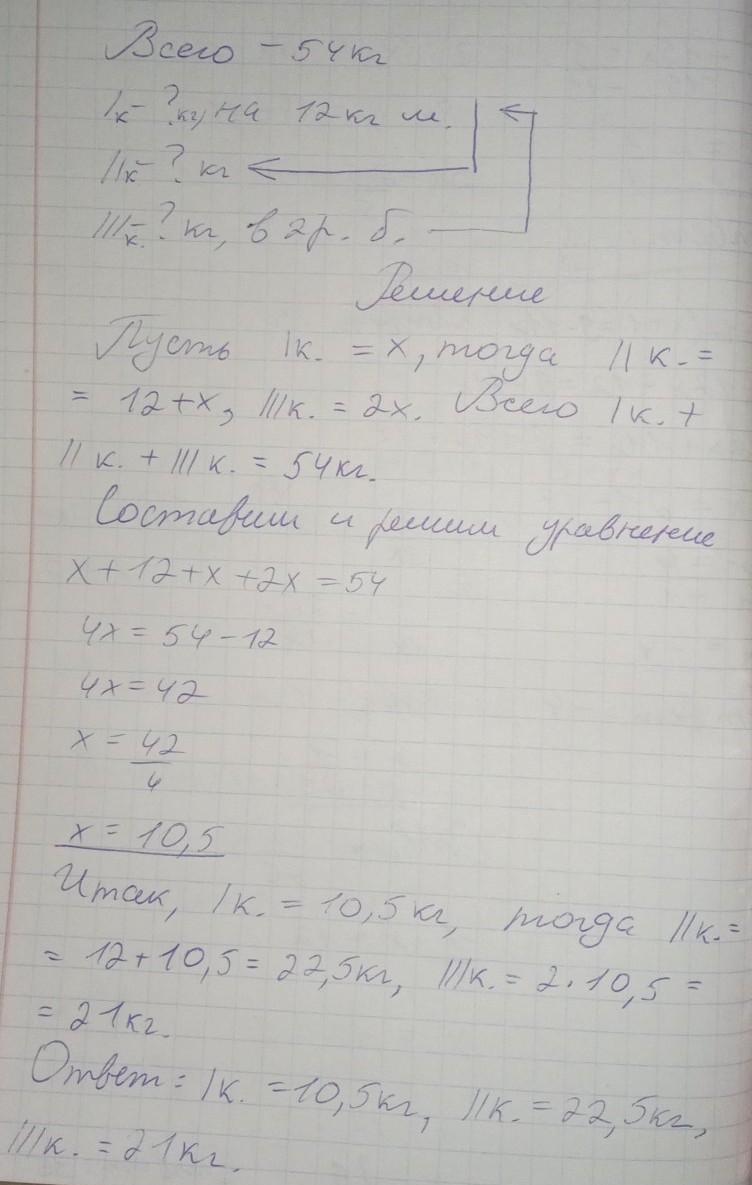 Всего – 54кг
Iк – ? кг, на 12кг м.
IIк – ? кг
IIIк. – ? кг, в 2р. б.
Решение
Пусть Iк. = x, тогда II к. =
= 12+x, IIIк. = 2x. Всего Iк. +
II к. + III к. = 54кг.
Составим и решим уравнение
x + 12 + x + 2x = 54
4x = 54 – 12
4x = 42
x = 42
4
x = 10,5
Итак, Iк. = 10,5кг, тогда IIк. =
= 12 + 10,5 = 22,5кг, IIIк. = 2 · 10,5 =
= 21кг.
Ответ: Iк. = 10,5кг, IIк. = 22,5кг,
IIIк. = 21кг.